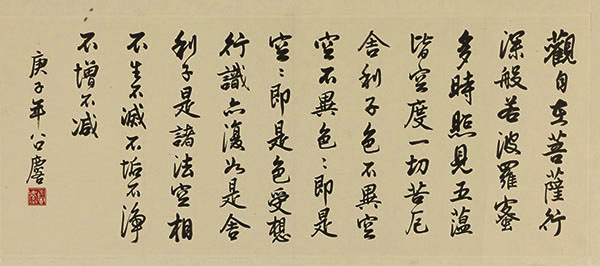 觀自在菩薩行
深般若波羅蜜
多時照見五蘊
皆空度一切苦厄
舍利子色不異空
空不異色〻即是
空〻即是色受想
行識亦復如是舍
利子是諸法空相
不生不滅不垢不淨
不增不減
庚子年公慶